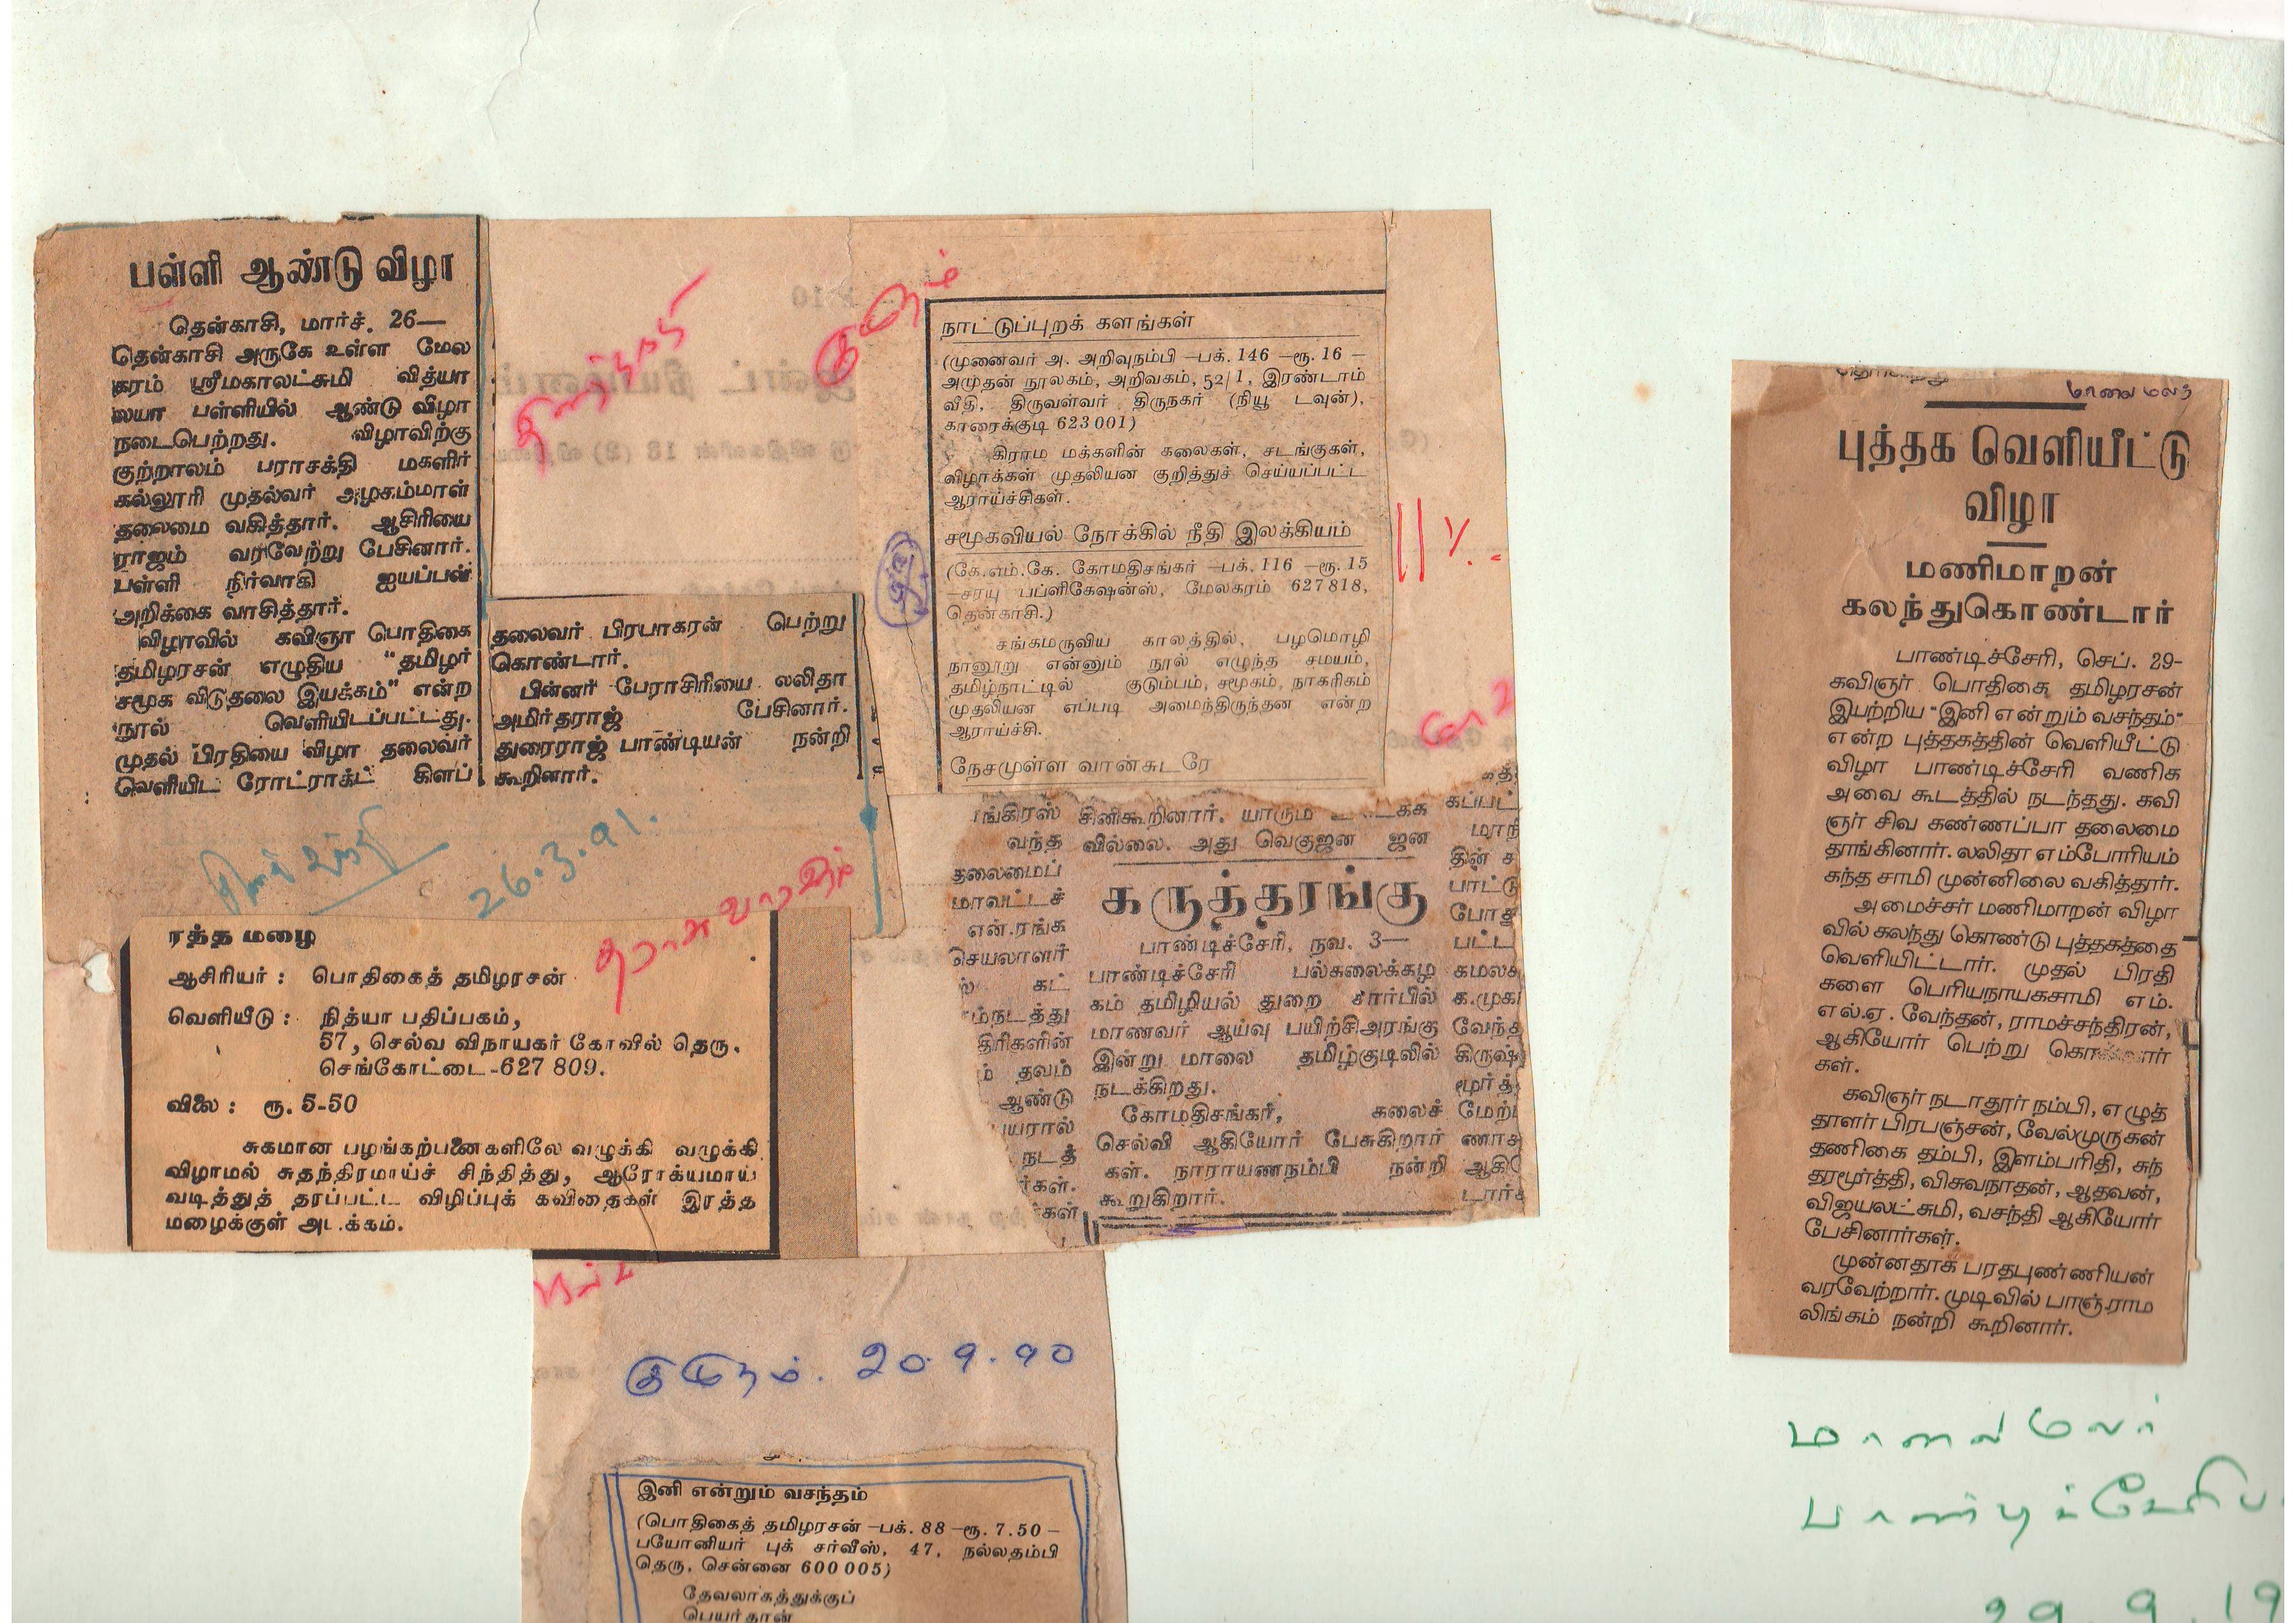 பள்ளி ஆண்டு விழா
தென்காசி, மார்ச். 26—
தென்காசி அருகே உள்ள மேல
கரம் ஸ்ரீமகாலட்சுமி வித்யா
லயா பள்ளியில் ஆண்டு விழா
நடைபெற்றது. விழாவிற்கு
குற்றாலம் பராசக்தி மகளிர்
கல்லூரி முதல்வர் அழகம்மாள்
தலைமை வகித்தார். ஆசிரியை
ராஜம் வரவேற்று பேசினார்.
பள்ளி நிர்வாகி ஐயப்பன்
அறிக்கை வாசித்தார்.
விழாவில் கவிஞா பொதிகை
தமிழரசன் எழுதிய "தமிழர்
சமூக விடுதலை இயக்கம்" என்ற
நூல் வெளியிடப்பட்டது.
முதல் பிரதியை விழா தலைவர்
வெளியிட ரோட்ராக்ட் கிளப்
தலைவர் பிரபாகரன் பெற்று
கொண்டார்.
பின்னர் பேராசிரியை லலிதா
அமிர்தராஜ் பேசினார்.
துரைராஜ் பாண்டியன் நன்றி
கூறினார்.
26.3.91.
ரத்த மழை
ஆசிரியர் : பொதிகைத் தமிழரசன்
வெளியீடு : நித்யா பதிப்பகம்,
57, செல்வ விநாயகர் கோவில் தெரு.
செங்கோட்டை-627 809.
விலை : ரூ. 5-50
சுகமான பழங்கற்பனைகளிலே வழுக்கி வழுக்கி
விழாமல் சுதந்திரமாய்ச் சிந்தித்து, ஆரோக்யமாய்
வடித்துத் தரப்பட்ட விழிப்புக் கவிதைகள் இரத்த
மழைக்குள் அடக்கம்.
நாட்டுப்புறக் களங்கள்
(முனைவர் அ. அறிவுநம்பி —பக். 146 —ரூ. 16 —
அமுதன் நூலகம், அறிவகம், 52/1, இரண்டாம்
வீதி, திருவள்வர் திருநகர் (நியூ டவுன்),
காரைக்குடி 623 001)
கிராம மக்களின் கலைகள், சடங்குகள்,
விழாக்கள் முதலியன குறித்துச் செய்யப்பட்ட
ஆராய்ச்சிகள்.
சமூகவியல் நோக்கில் நீதி இலக்கியம்
(கே.எம்.கே. கோமதிசங்கர் —பக். 116 —ரூ. 15
—சரயு பப்ளிகேஷன்ஸ், மேலகரம் 627 818,
தென்காசி.)
சங்கமருவிய காலத்தில், பழமொழி
நானூறு என்னும் நூல் எழுந்த சமயம்,
தமிழ்நாட்டில் குடும்பம், சமூகம், நாகரிகம்
முதலியன எப்படி அமைந்திருந்தன என்ற
ஆராய்ச்சி.
நேசமுள்ள வான்சுடரே
சினிகூறினார். யாரும்
வில்லை. அது வெகுஜன ஜன
கருத்தரங்கு
பாண்டிச்சேரி, நவ. 3—
பாண்டிச்சேரி பல்கலைக்கழ
கம் தமிழியல் துறை சார்பில்
மாணவர் ஆய்வு பயிற்சிஅரங்கு
இன்று மாலை தமிழ்குடிலில்
நடக்கிறது.
கோமதிசங்கர், கலைச்
செல்வி ஆகியோர் பேசுகிறார்
கள். நாராயணநம்பி நன்றி
கூறுகிறார்.
வந்த
தலைமைப்
மாவட்டச்
என்.ரங்க
செயலாளர்
கட்
தவம்
ஆண்டு
நடத்
20.9.90
இனி என்றும் வசந்தம்
(பொதிகைத் தமிழரசன் —பக். 88 —ரூ. 7.50 —
பயோனியர் புக் சர்வீஸ், 47, நல்லதம்பி
தெரு, சென்னை 600 005)
தேவலாகத்துக்குப்
பெயர்தான்
மாலை மலர்
புத்தக வெளியீட்டு
விழா
மணிமாறன்
கலந்துகொண்டார்
பாண்டிச்சேரி, செப். 29-
கவிஞர் பொதிகை தமிழரசன்
இயற்றிய "இனி என்றும் வசந்தம்"
என்ற புத்தகத்தின் வெளியீட்டு
விழா பாண்டிச்சேரி வணிக
அவை கூடத்தில் நடந்தது. கவி
ஞர் சிவ கண்ணப்பா தலைமை
தாங்கினார். லலிதா எம்போரியம்
கந்த சாமி முன்னிலை வகித்தார்.
அமைச்சர் மணிமாறன் விழா
வில் கலந்து கொண்டு புத்தகத்தை
வெளியிட்டார். முதல் பிரதி
களை பெரியநாயகசாமி எம்.
எல்.ஏ. வேந்தன், ராமச்சந்திரன்,
ஆகியோர் பெற்று
கள்.
கவிஞர் நடாதூர் நம்பி, எழுத்
தாளர் பிரபஞ்சன், வேல்முருகன்
தணிகை தம்பி, இளம்பரிதி, சுந்
தரமூர்த்தி, விசுவநாதன், ஆதவன்,
விஜயலட்சுமி, வசந்தி ஆகியோர்
பேசினார்கள்.
முன்னதாக பரதபுண்ணியன்
வரவேற்றார். முடிவில் பாஞ்.ராம
லிங்கம் நன்றி கூறினார்.
மாலை மலர்
29.9.19